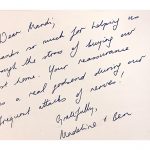 Dear Mandi,
hanks so much for helping us
ough the stress of buying our
st home. Your reassurance
as a real godsend during our
frequent attacks of nerves!
Gratefully,
Madeline & Ben